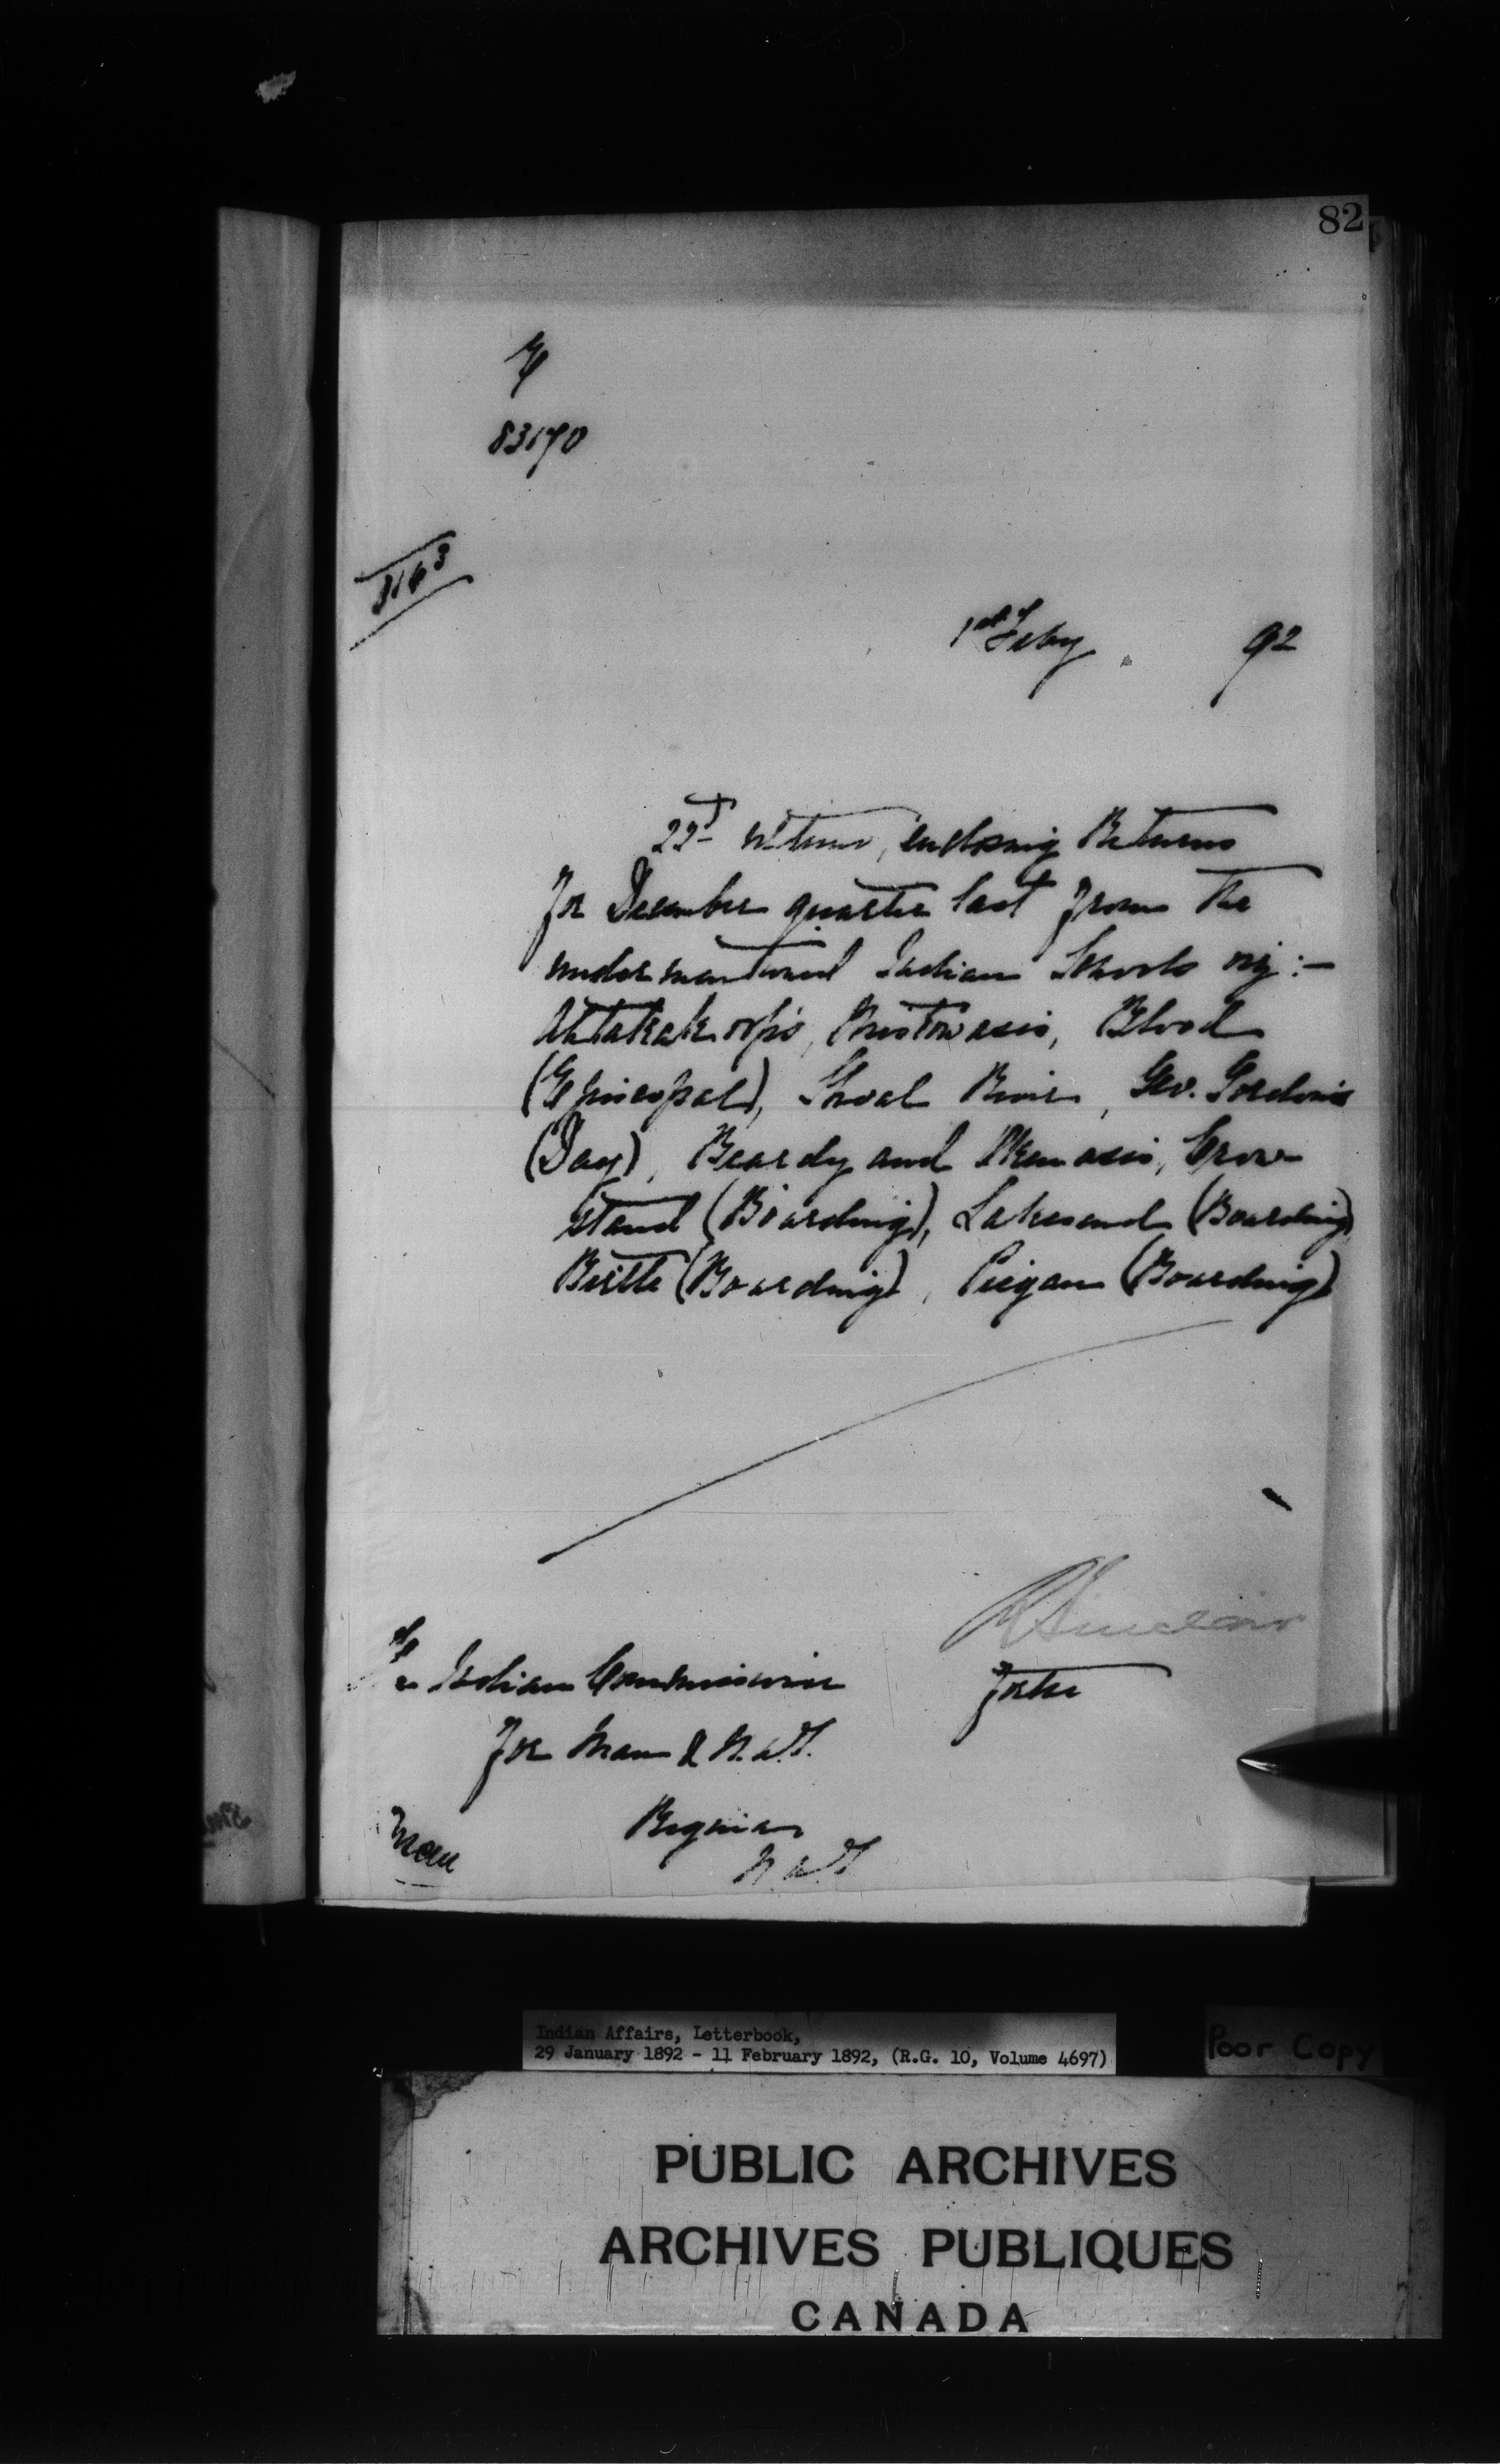 82
83170
1st Feby 92
22nd ultimo, enclosing Returns
for December quarter last from the
undermentioned Indian Schools viz:-
Ahtahakoop's, Mistowasis, Blood
(Episcopal), Shoal River, Geo. Gordon's
(Day), Beardy and Okemasis, Crow-
stand (Boarding), Lakesend (Boarding)
Birtle (Boarding), Piegan (Boarding)
Sinclair
The Indian Commissioner for the
for Man & N.W.T.
Regina
N.W.T.
Indian Affairs, Letterbook,
29 January 1892 - 11 February 1892, (R.G. 10, Volume 4697)
Poor Copy
PUBLIC ARCHIVES
ARCHIVES PUBLIQUES
CANADA